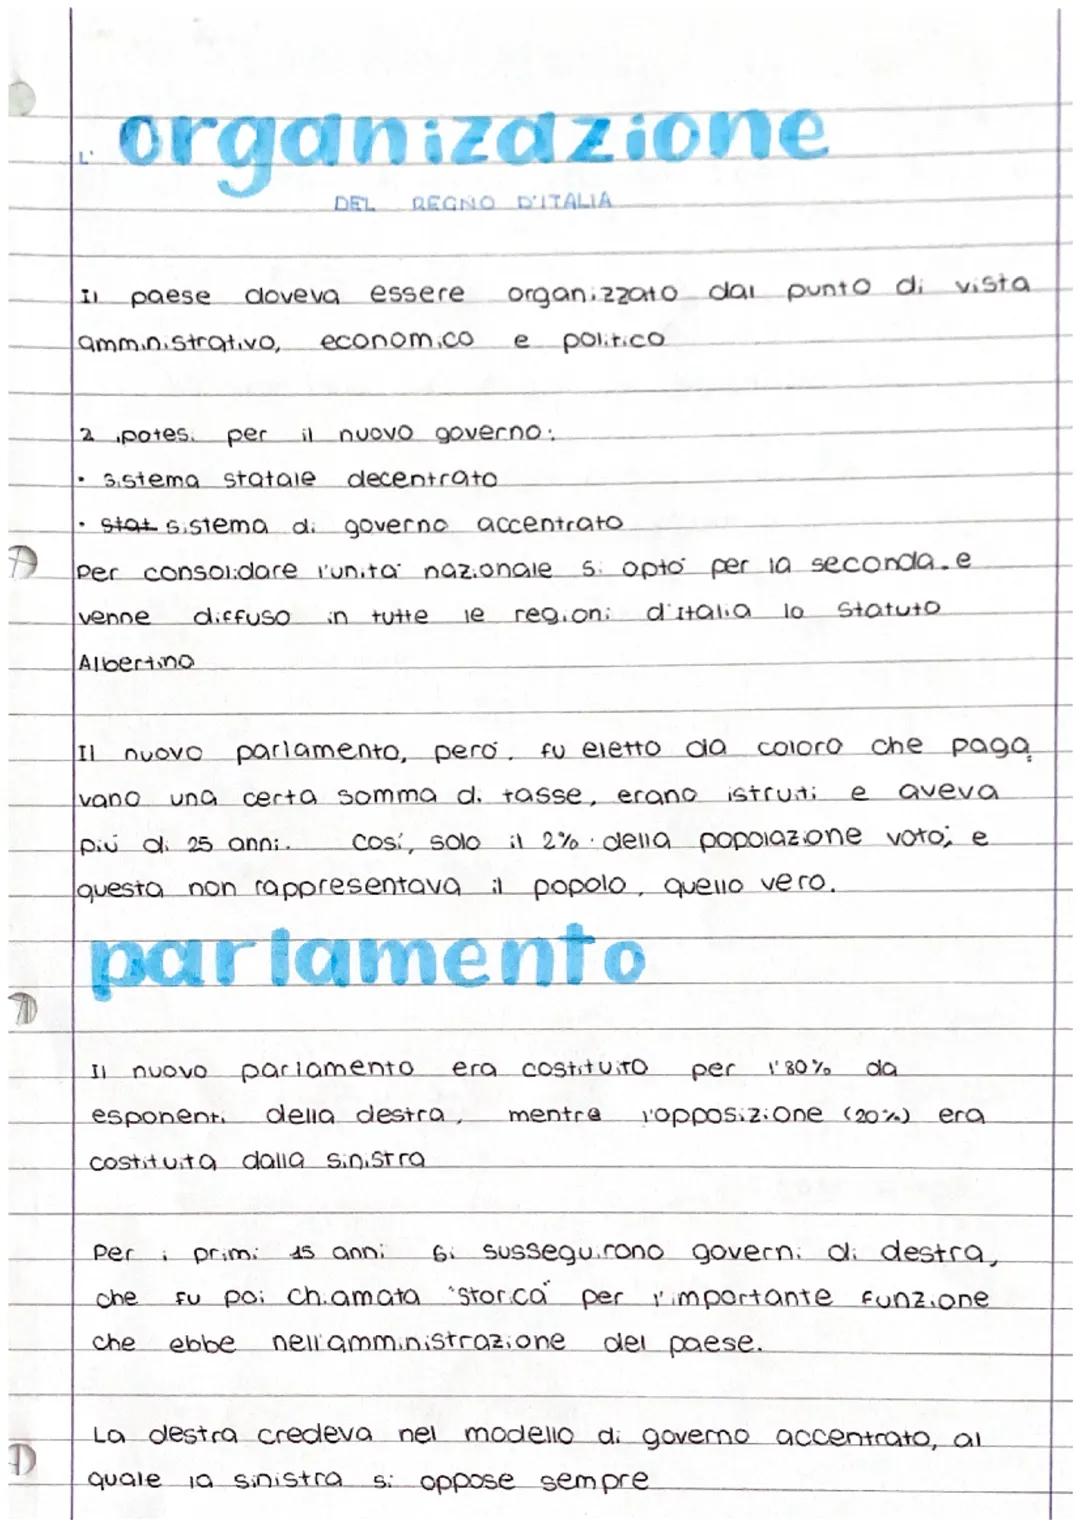 L' organizazione
DEL REGNO D'ITALIA
Il paese doveva essere organizzato dal punto di vista
amministrativo, economico e politico
2 ipotesi per il nuovo governo:
• sistema statale decentrato
• stat sistema di governo accentrato
Per consolidare l'unità nazionale si optò per la seconda e
venne diffuso in tutte le regioni d'Italia lo Statuto
Albertino
Il nuovo parlamento, però, fu eletto da coloro che paga
vano una certa somma di tasse, erano istruiti e aveva
più di 25 anni. Così, solo il 2% della popolazione votò; e
questa non rappresentava il popolo, quello vero.
parlamento
Il nuovo parlamento era costituito per l'80% da
esponenti della destra, mentre l'opposizione (20%) era
costituita dalla sinistra
Per i primi 15 anni si susseguirono governi di destra,
che fu poi chiamata "storica" per l'importante funzione
che ebbe nell'amministrazione del paese.
La destra credeva nel modello di governo accentrato, al
quale la sinistra si oppose sempre